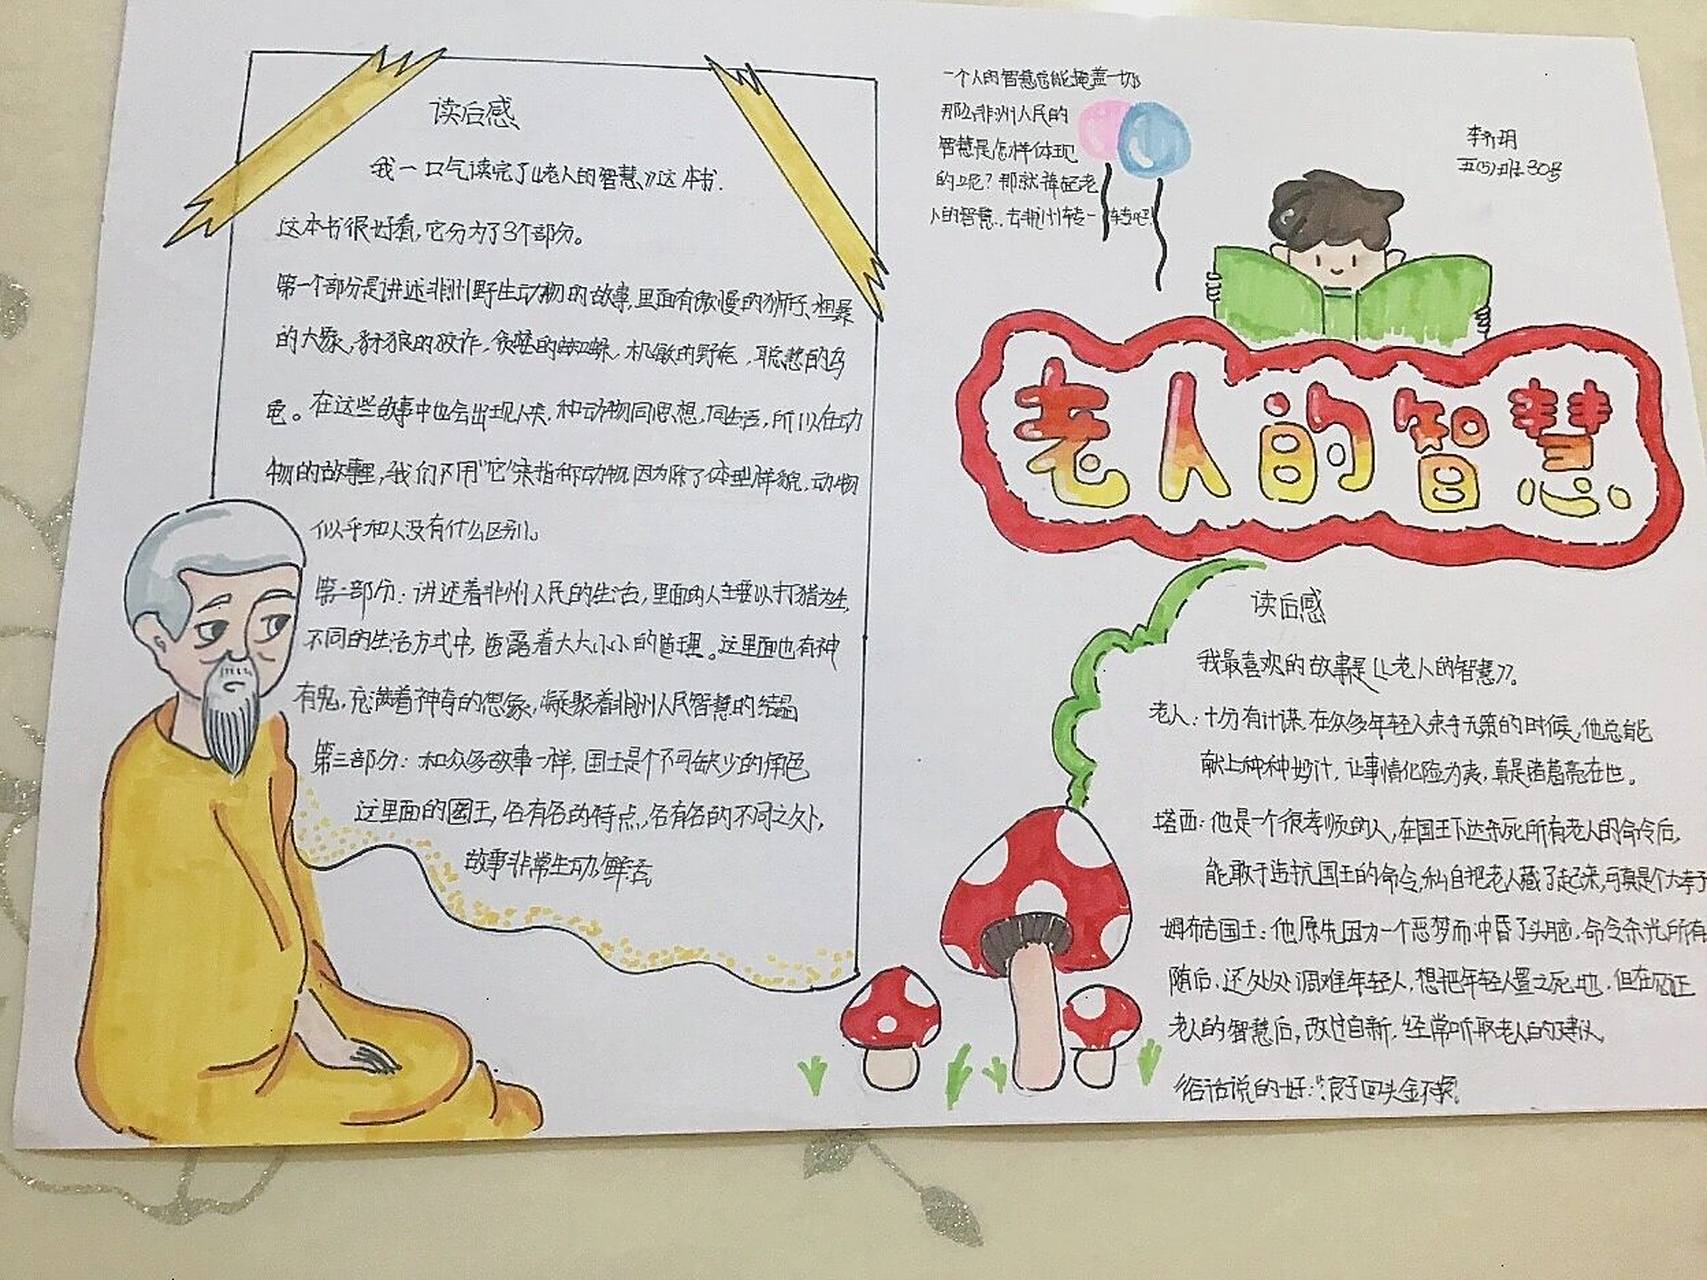 读后感
我一口气读完了《老人的智慧》这本书.
这本书很好看,它分为了3个部分。
第一个部分是讲述非洲野生动物的故事,里面有傲慢的狮子、粗暴
的大象,豺狼的狡诈,贪婪的蜘蛛,机敏的野兔,聪慧的乌
龟。在这些故事中也会出现人类,和动物同思想,同生活,所以在动
物的故事里,我们不用“它”来指称动物,因为除了体型样貌,动物
似乎和人没有什么区别。
第二部分:讲述着非洲人民的生活,里面的人主要以打猎为生,
不同的生活方式中,透露着大大小小的道理。这里面也有神
有鬼,充满着神奇的想象,凝聚着非洲人民智慧的结晶
第三部分:和众多故事一样,国王是个不可缺少的角色
这里面的国王,各有各的特点,各有各的不同之处,
故事非常生动,鲜活
一个人的智慧总能掩盖一切
那么非洲人民的
智慧是怎样体现
的呢?那就捧起老
人的智慧,去非洲转一转吧!
五(5)班30号
老人的智慧
读后感
我最喜欢的故事是《老人的智慧》。
老人:十分有计谋,在众多年轻人束手无策的时候,他总能
献上种种妙计,让事情化险为夷,真是诸葛亮在世。
塔西:他是一个很孝顺的人,在国王下达杀死所有老人的命令后,
能敢于违抗国王的命令,私自把老人藏了起来,可真是个大孝子
姆布吉国王:他原先因为一个恶梦而冲昏了头脑,命令杀光所有
随后,还处处刁难年轻人,想把年轻人置之死地,但在见证
老人的智慧后,改过自新,经常听取老人的建议,
俗话说的好:“浪子回头金不换”